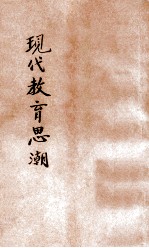 现代教育思潮